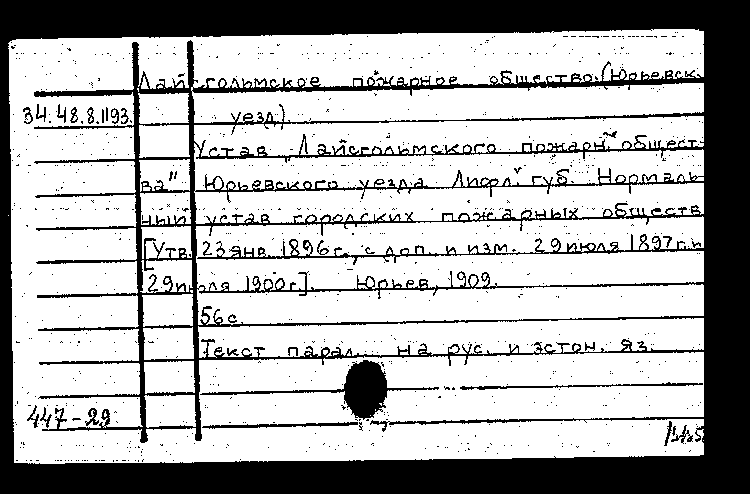 Лайсгольмское пожарное общество. (Юрьевск.
34.48.8.1193. уезд)
Устав „Лайсгольмского пожарн. общест-
ва" Юрьевского уезда Лифл. губ. Нормаль-
ный устав городских пожарных обществ
[Утв. 23 янв. 1896 г., с доп. и изм. 29 июля 1897 г. и
29 июля 1900 г]. Юрьев, 1909.
56 с.
Текст парал. на рус. и эстон. яз.
447-29